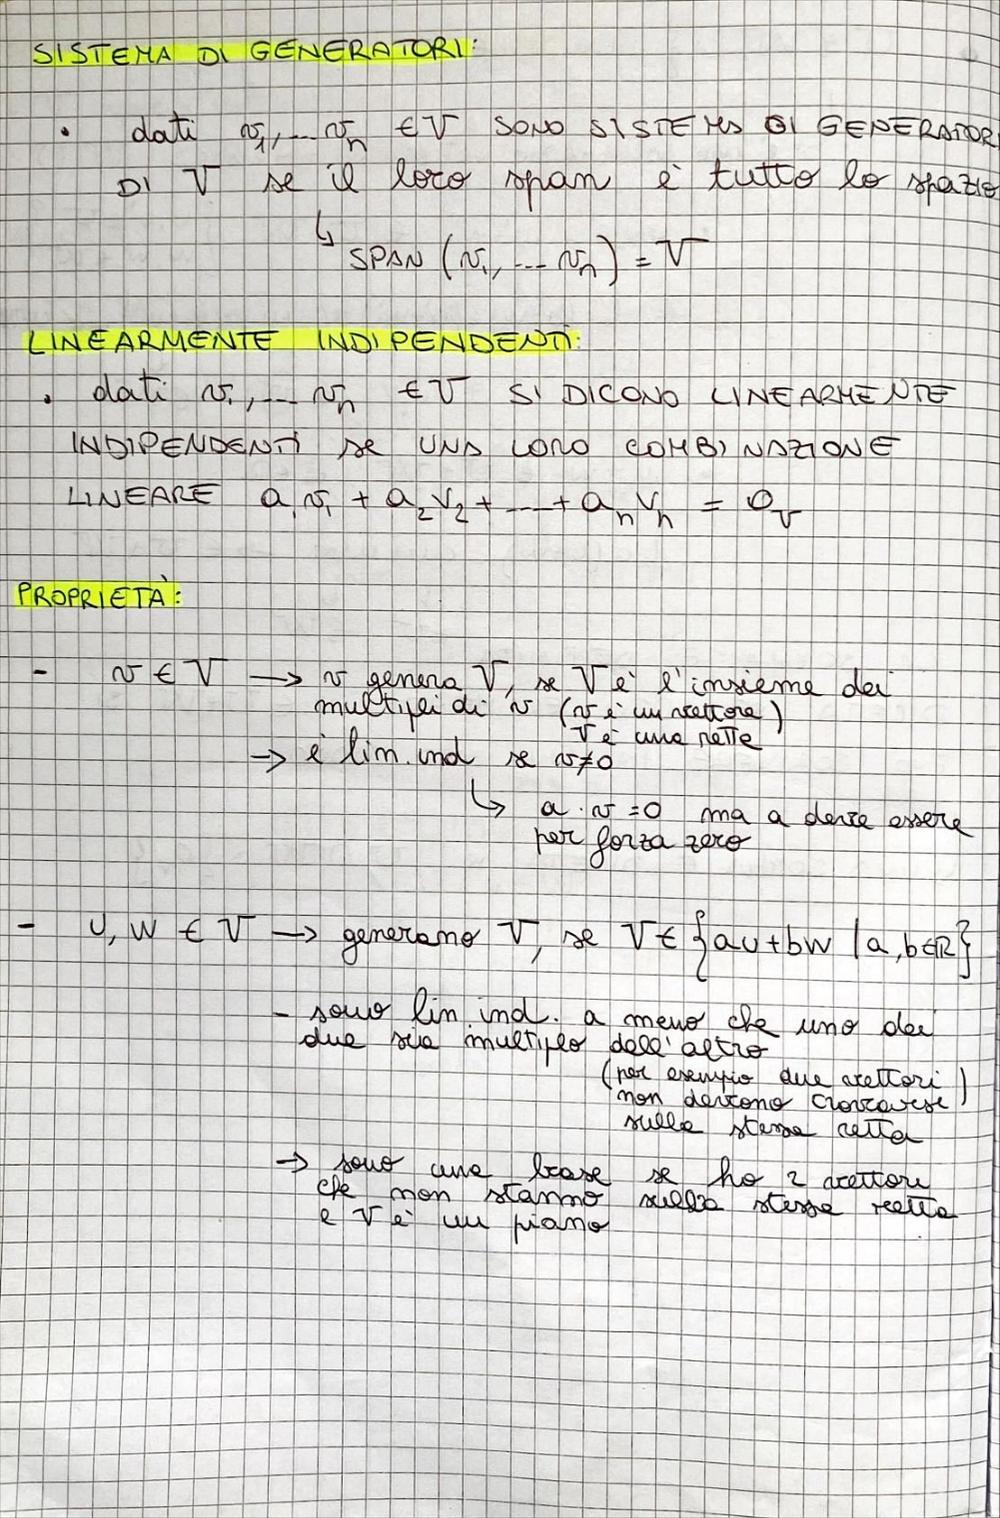 SISTEMA DI GENERATORI:
• dati v₁,... vₙ ∈ V SONO SISTEMA DI GENERATORI
DI V se il loro span è tutto lo spazio
↳ SPAN (v₁, ... vₙ) = V
LINEARMENTE INDIPENDENTI:
• dati v₁,... vₙ ∈ V SI DICONO LINEARMENTE
INDIPENDENTI se UNA LORO COMBINAZIONE
LINEARE a₁v₁ + a₂v₂ + ... + aₙvₙ = 0ᵥ
PROPRIETÀ:
- v ∈ V → v genera V, se V è l'insieme dei
multipli di v (v è un vettore)
V è una retta
→ è lin. ind se v≠0
↳ a · v = 0 ma a deve essere
per forza zero
- u, w ∈ V → generano V, se V ∈ {au+bw | a, b ∈ ℝ}
- sono lin. ind. a meno che uno dei
due sia multiplo dell'altro
(per esempio due vettori)
non devono trovarsi
sulla stessa retta
→ sono una base se ho 2 vettori
che non stanno sulla stessa retta
e V è un piano